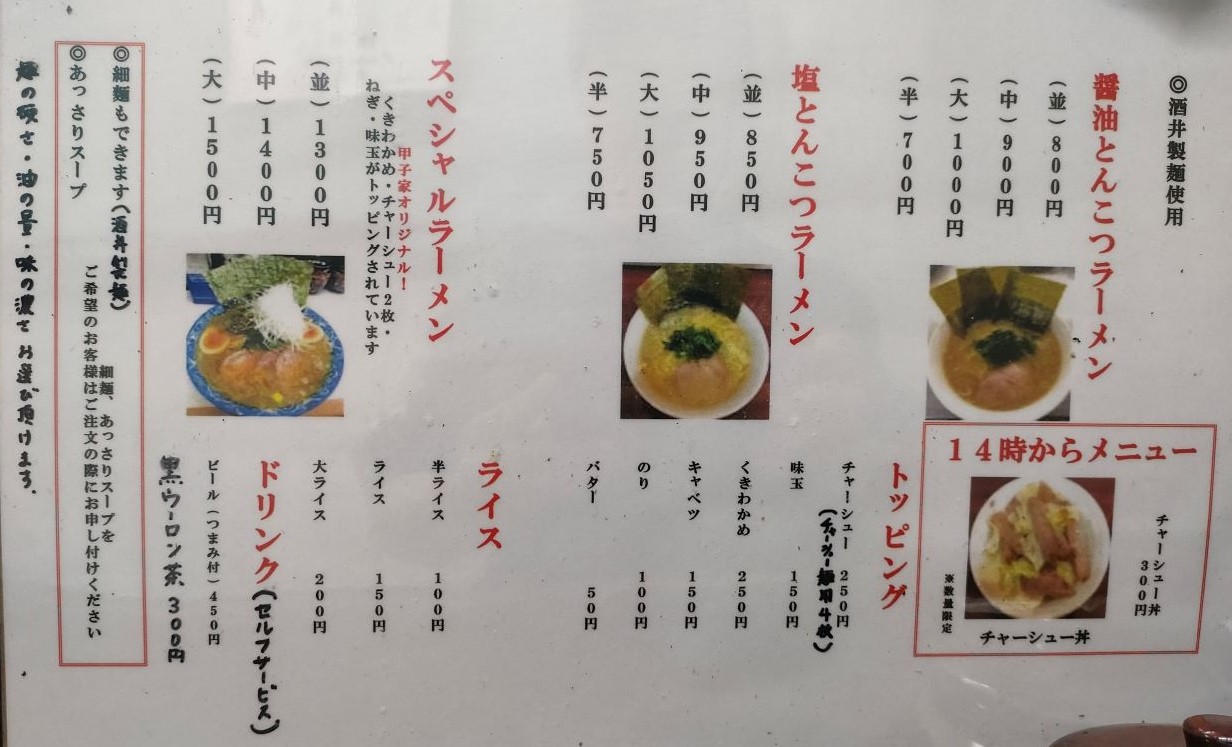 ◎酒井製麺使用
醤油とんこつラーメン
(並)800円
(中)900円
(大)1000円
(半)700円
塩とんこつラーメン
(並)850円
(中)950円
(大)1050円
(半)750円
スペシャルラーメン
甲子家オリジナル!
くきわかめ・チャーシュー2枚・
ねぎ・味玉がトッピングされています
(並)1300円
(中)1400円
(大)1500円
14時からメニュー
チャーシュー丼
300円
チャーシュー丼
※数量限定
トッピング
チャーシュー 250円
(チャーシュー麺用4枚)
味玉 150円
くきわかめ 250円
キャベツ 150円
のり 100円
バター 50円
ライス
半ライス 100円
ライス 150円
大ライス 200円
ドリンク(セルフサービス)
ビール(つまみ付)450円
黒ウーロン茶 300円
◎細麺もできます(酒井製麺)
◎あっさりスープ
細麺、あっさりスープを
ご希望のお客様はご注文の際にお申し付けください
麺の硬さ・油の量・味の濃さお選び頂けます.